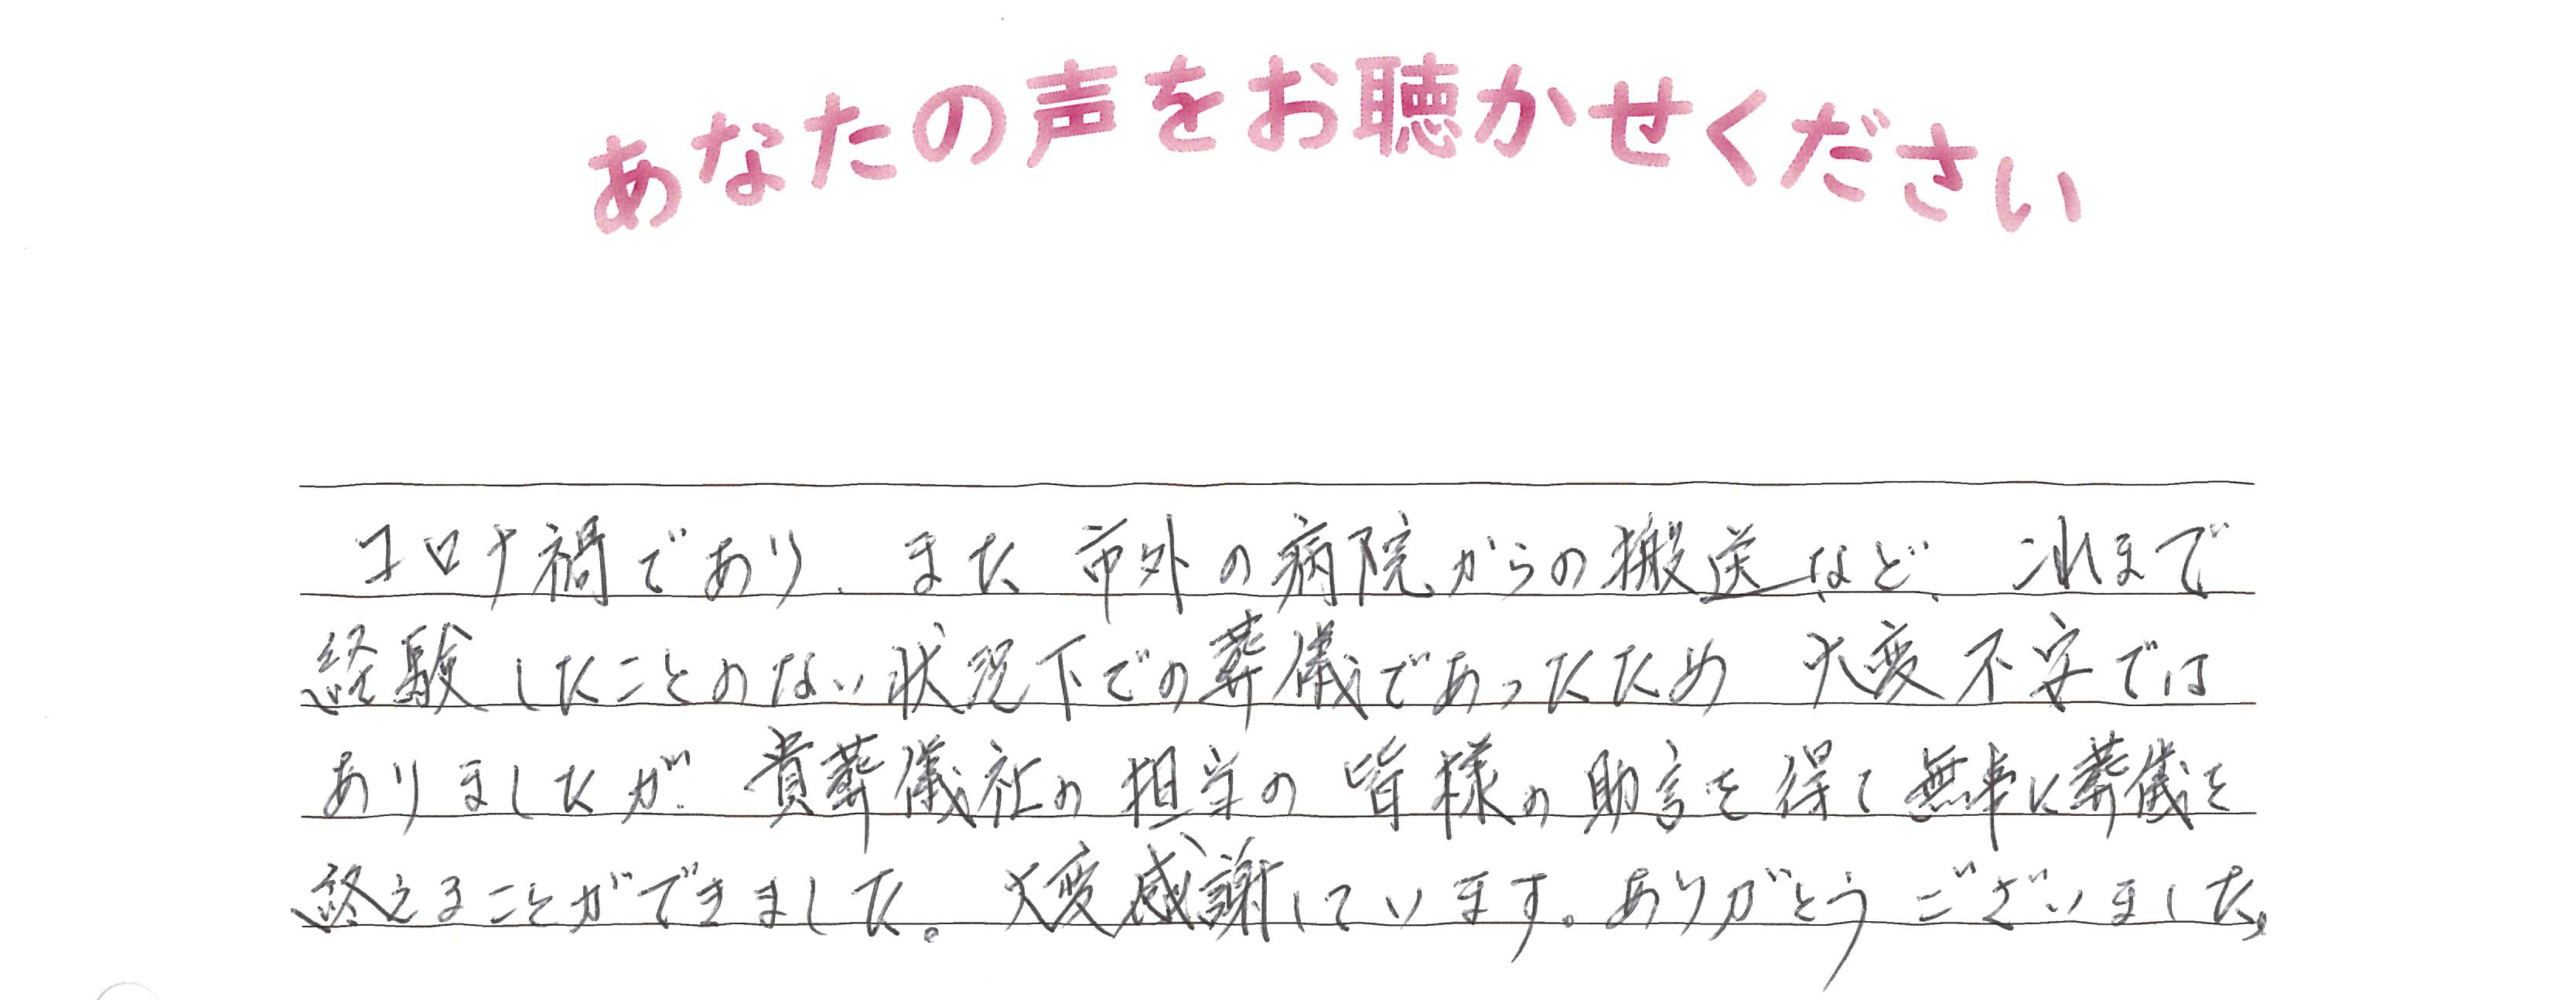 あなたの声をお聴かせください
コロナ禍であり、また市外の病院からの搬送など、これまで
経験したことのない状況下での葬儀であったため大変不安では
ありましたが、貴葬儀社の担当の皆様の助言を得て無事に葬儀を
終えることができました。大変感謝しています。ありがとうございました。